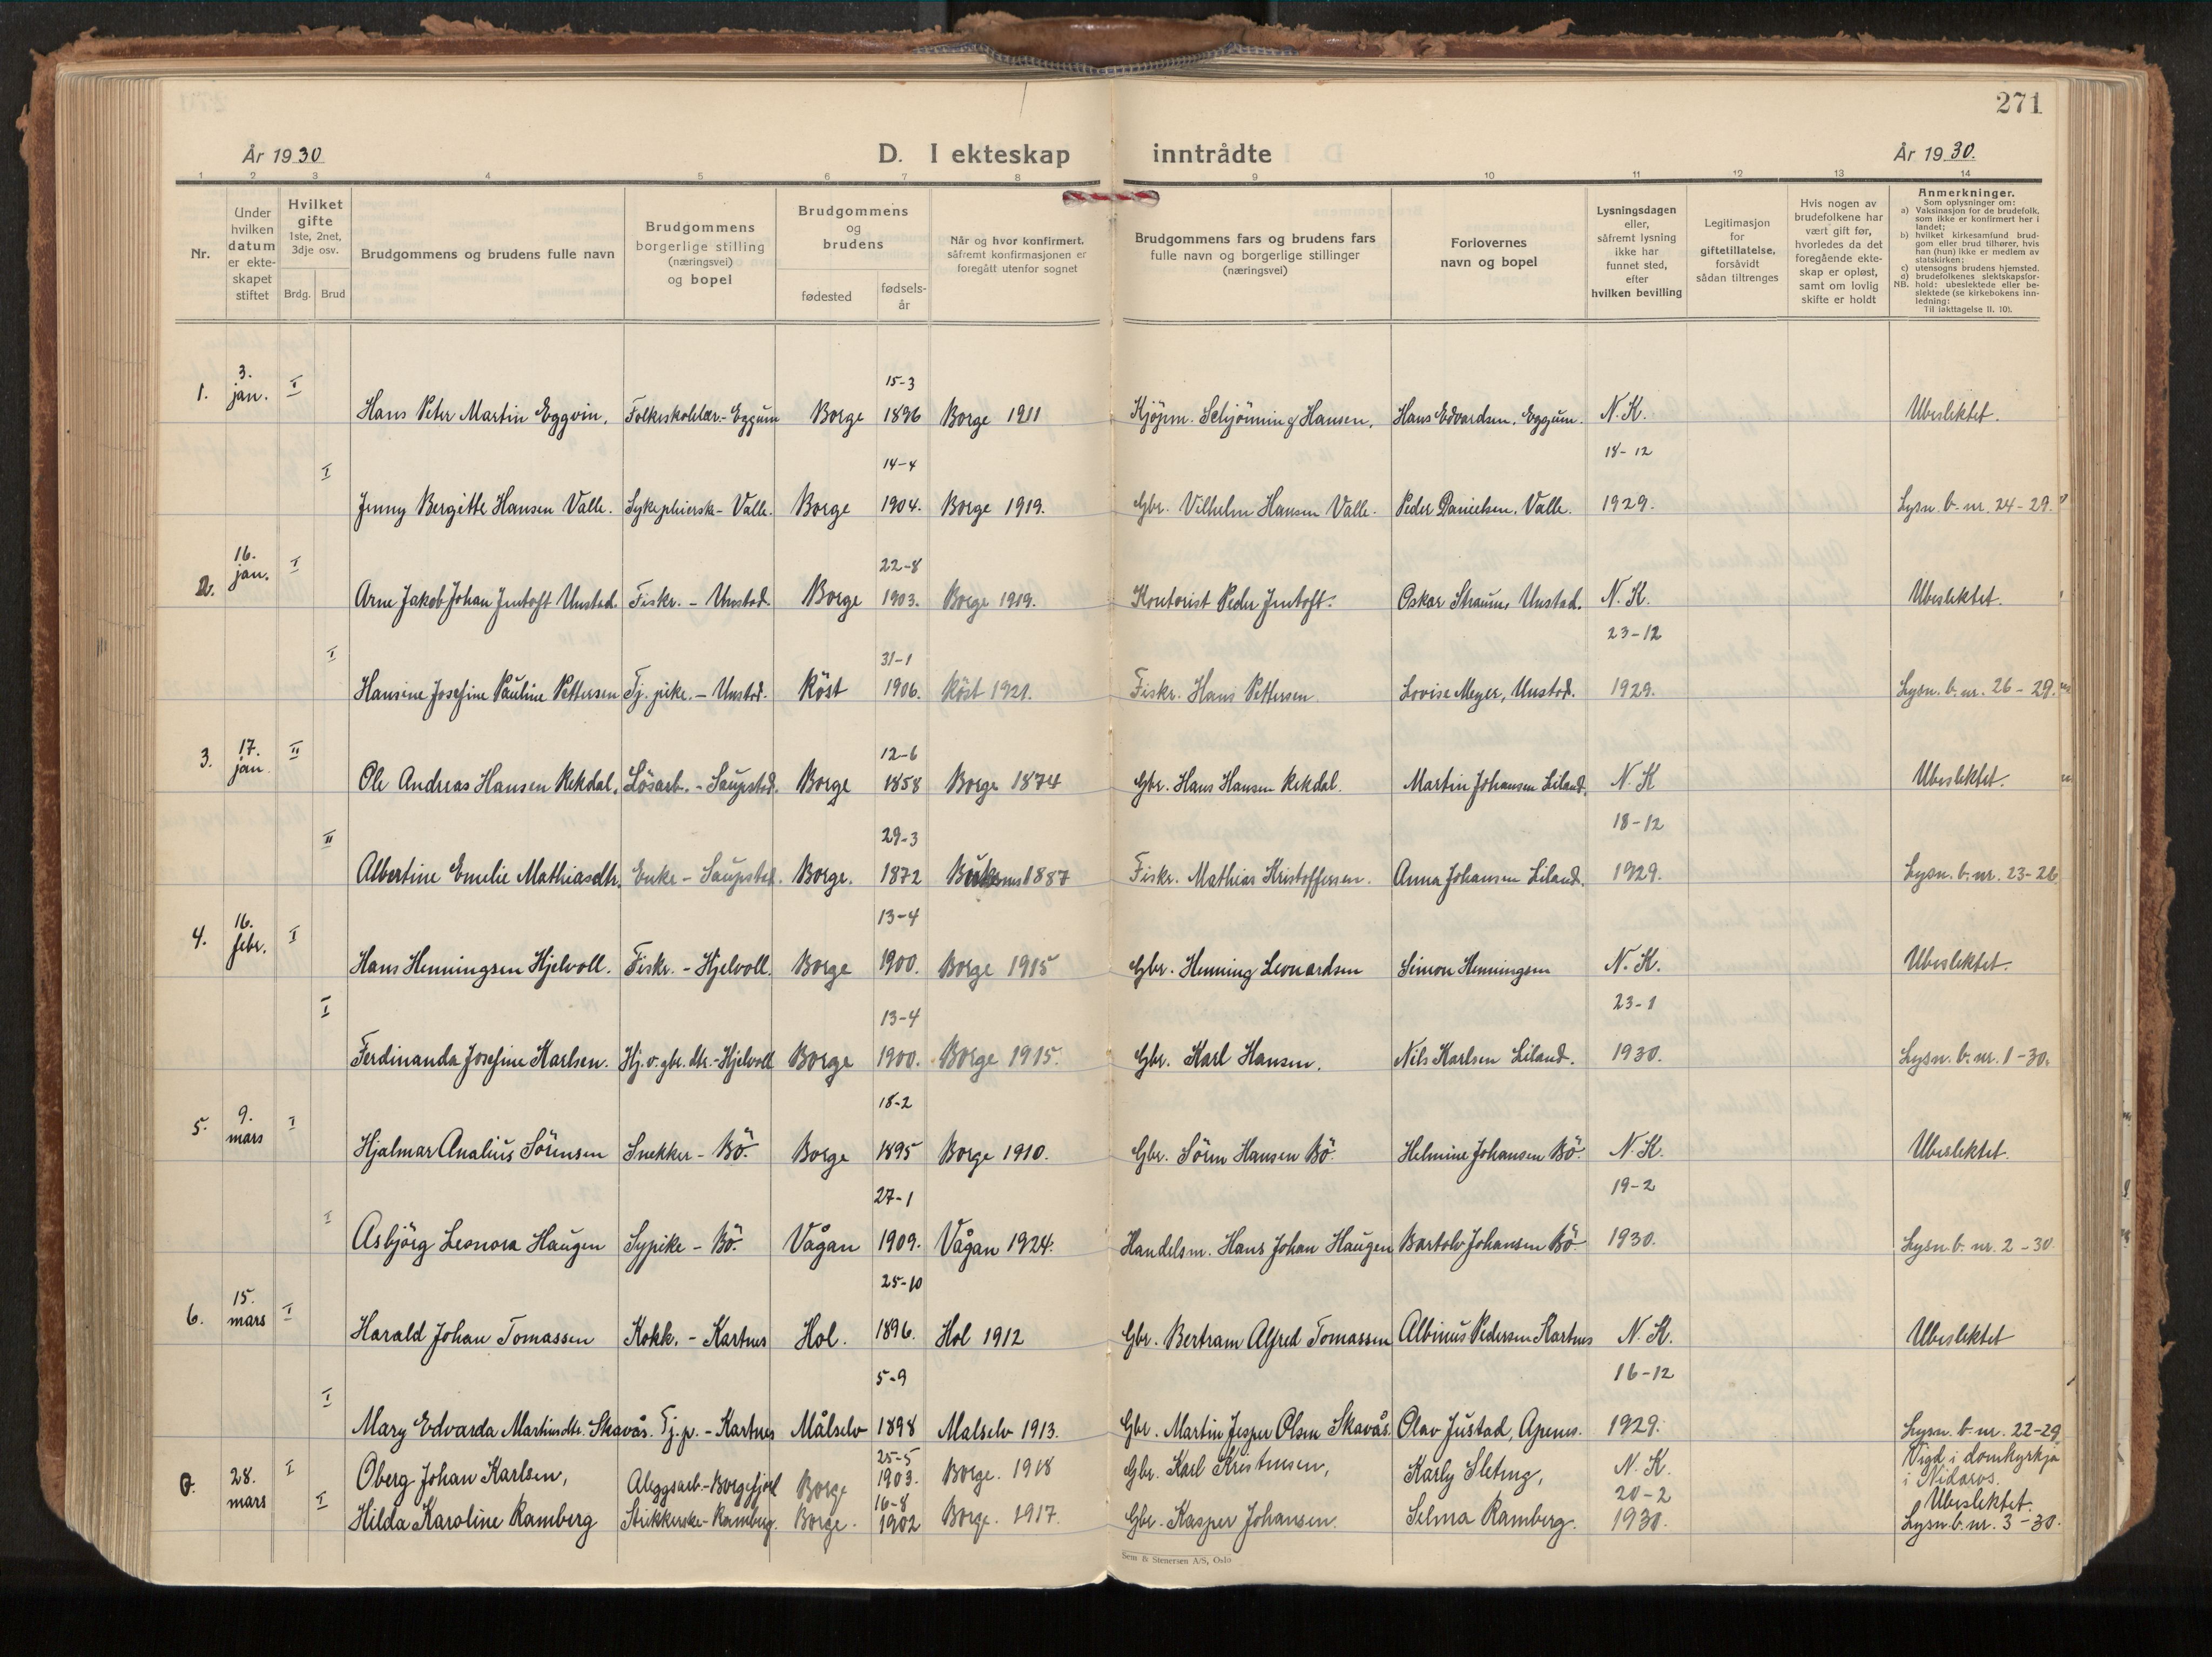 271
År 1930
D. I ekteskap inntrådte
År 1930.
1 2 3 4 5 6 7 8 9 10 11 12 13 14
Nr.
Under hvilken datum er ekte-skapet stiftet
Hvilket gifte 1ste, 2net, 3dje osv.
Brdg. Brud
Brudgommens og brudens fulle navn
Brudgommens borgerlige stilling (næringsvei) og bopel
Brudgommens og brudens
fødested
fødsels-år
Når og hvor konfirmert, såfremt konfirmasjonen er foregått utenfor sognet
Brudgommens fars og brudens fars fulle navn og borgerlige stillinger (næringsvei)
Forlovernes navn og bopel
Lysningsdagen eller, såfremt lysning ikke har funnet sted, efter hvilken bevilling
Legitimasjon for giftetillatelse, forsåvidt sådan tiltrenges
Hvis nogen av brudefolkene har vært gift før, hvorledes da det foregående ekte-skap er opløst, samt om lovlig skifte er holdt
Anmerkninger.
Som oplysninger om:
a) Vaksinasjon for de brudefolk, som ikke er konfirmert her i landet;
b) hvilket kirkesamfund brud-gom eller brud tilhører, hvis han (hun) ikke er medlem av statskirken;
c) utensogns brudens hjemsted.
d) brudefolkenes slektskapsfor-hold: ubeslektede eller be-slektede (se kirkebokens inn-ledning:
NB. Til iakttagelse II. 10).
1. 3. jan. I Hans Peter Martin Eggvin, Folkeskolelær.- Eggum Borge 15-3 1896 Borge 1911 Kjöpm. Schjönning Hansen, Hans Edvardsen, Eggum. N. K. Ubeslektet.
I Jenny Bergitte Hansen Valle. Sykepleierske - Valle. Borge 14-4 1904. Borge 1919. Gbr. Vilhelm Hansen Valle. Peder Danielsen, Valle. 18-12 1929. Lysn. b. nr. 24-29.
2. 16. jan. I Arne Jakob Johan Jentoft Unstad. Fiskr. - Unstad. Borge 22-8 1903. Borge 1919. Kontorist Peder Jentoft. Oskar Straum, Unstad. N. K. Ubeslektet.
I Hansine Josefine Pauline Pettersen Tj. pike. - Unstad. Röst 31-1 1906. Röst 1921. Fiskr. Hans Pettersen. Lovise Meyer, Unstad. 23-12 1929. Lysn. b. nr. 26-29.
3. 17. jan II Ole Andreas Hansen Rekdal, Lösarb. - Saupstad. Borge 12-6 1858 Borge 1874 Gbr. Hans Hansen Rekdal. Martin Johansen Liland. N. K Ubeslektet.
II Albertine Emelie Mathiasdtr. Enke - Saupstad. Borge. 29-3 1872 1887 Fiskr. Mathias Kristoffersen. Anna Johansen Liland. 18-12 1929. Lysn. b. nr. 23-26
4. 16. febr. I Hans Henningsen Hjelvoll. Fiskr. - Hjelvoll. Borge 13-4 1900. Borge 1915 Gbr. Henning Leonardsen Simon Henningsen N. K. Ubeslektet.
I Ferdinanda Josefine Karlsen. Hj. v. gbr. dtr. - Hjelvoll Borge 13-4 1900. Borge 1915. Gbr. Karl Hansen. Nils Karlsen Liland. 23-1 1930. Lysn. b. nr. 1-30.
5. 9. mars I Hjalmar Analius Sörensen Snekker - Bö. Borge 18-2 1895 Borge 1910. Gbr. Sören Hansen Bö. Helmine Johansen Bö N. K. Ubeslektet.
I Asbjörg Leonora Haugen Sypike - Bö. Vågan 27-1 1909. Vågan 1924. Handelsm. Hans Johan Haugen Bartolv Johansen Bö. 19-2 1930. Lysn. b. nr. 2-30
6. 15. mars I Harald Johan Tomassen Kokk. - Kartnes Hol. 25-10 1896. Hol 1912 Gbr. Bertram Alfred Tomassen Albinus Pedersen Kartnes N. K. Ubeslektet
I Mary Edvarda Martinsdtr. Skavås. Tj. p. - Kartnes Målselv 5-9 1898 Malselv 1913. Gbr. Martin Jesper Olsen Skavås. Olav Justad, Apenes. 16-12 1929. Lysn. b. nr. 22-29
28. mars I Oberg Johan Karlsen, Borge 25-5 1903. Borge. 1918 Gbr. Karl Kristensen, Karly N. K. Vigd i domkyrkja i Nidaros.
I Hilda Karoline Ramberg Strikkerske - Ramberg. Borge. 16-8 1902 Borge. 1917. Gbr. Kasper Johansen. Selma Ramberg. 20-2 1930. Ubeslektet. Lysn. b. nr. 3-30.
Sem & Stenersen A/S, Oslo